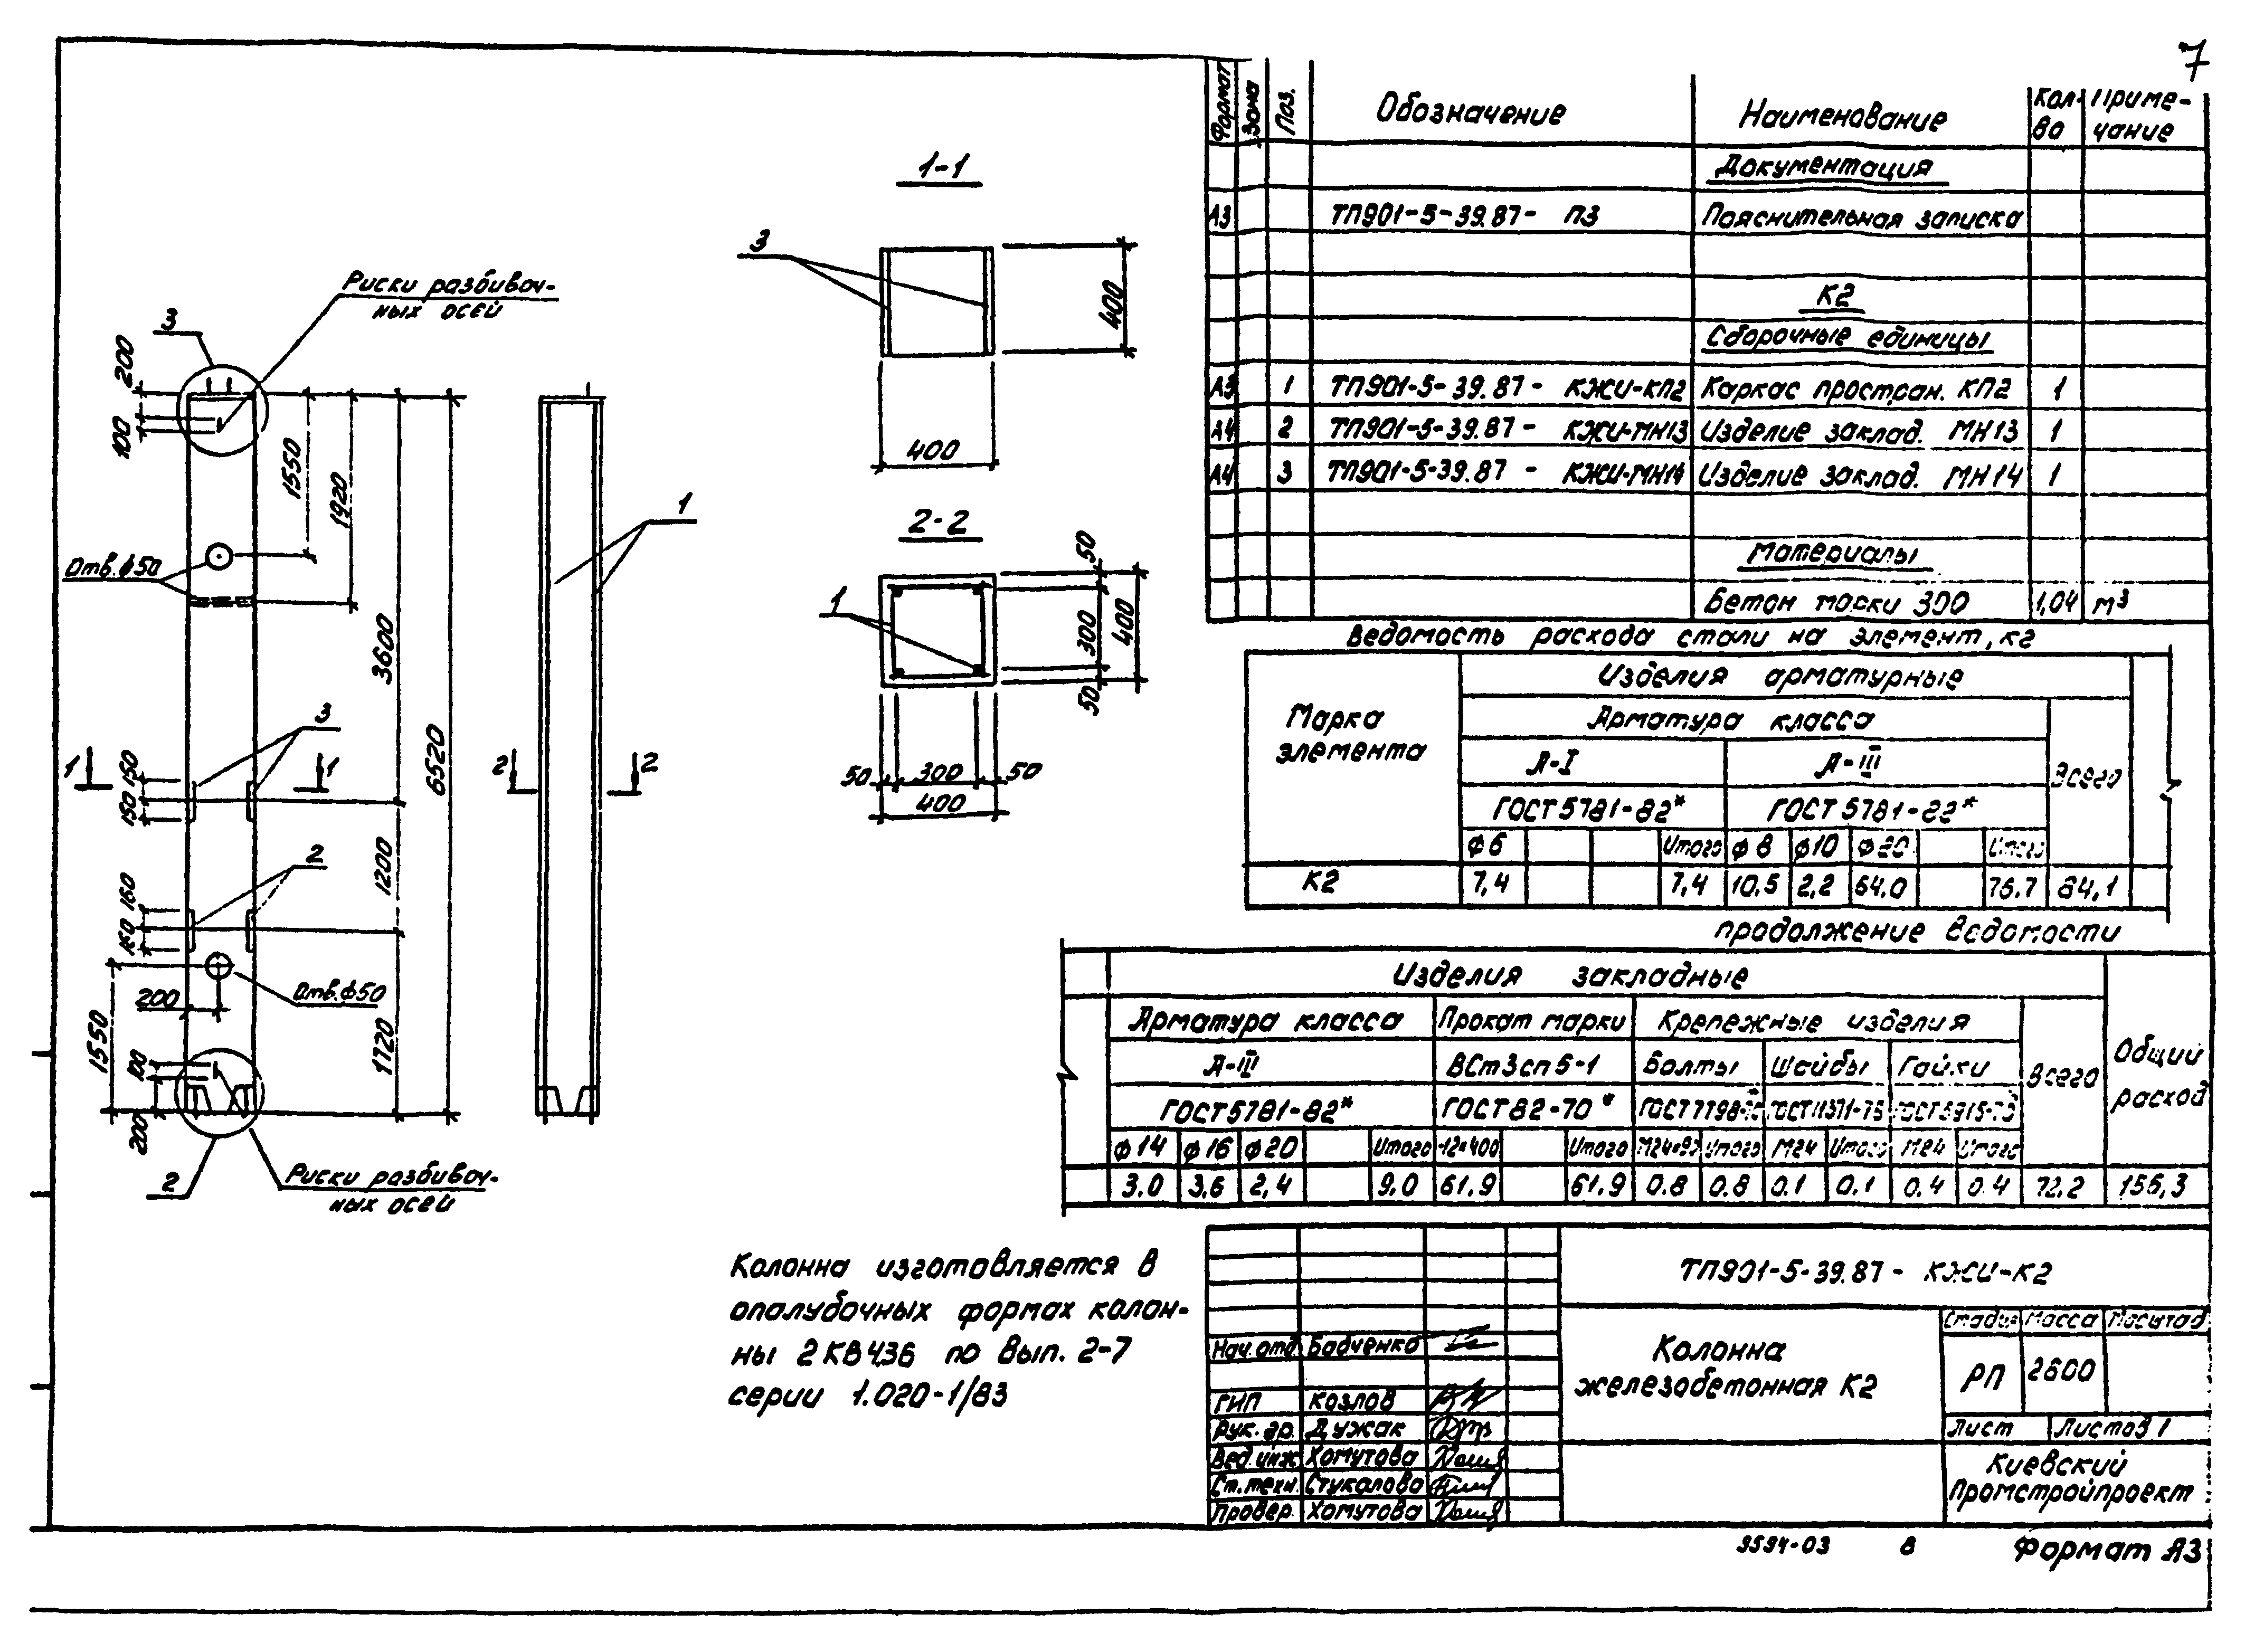 7
Риски разбивоч-
ных осей
3
200
100
1550
1920
Отв.ф50
3600
6520
3
1
1
150
150
2
1200
160
160
200
Отв.ф50
1550
1720
100
200
2
Риски разбивоч-
ных осей
1
2
2
1-1
3
400
400
2-2
1
50
300
400
50
50
300
50
400
Колонна изготовляется в
опалубочных формах колон-
ны 2КВ436 по вып. 2-7
серии 1.020-1/83
Формат Зона Поз. Обозначение Наименование Кол-во Приме-чание
Документация
А3 ТП901-5-39.87- ПЗ Пояснительная записка
К2
Сборочные единицы
А3 1 ТП901-5-39.87- КЖИ-КП2 Каркас простран. КП2 1
А4 2 ТП901-5-39.87- КЖИ-МН13 Изделие заклад. МН13 1
А4 3 ТП901-5-39.87- КЖИ-МН14 Изделие заклад. МН14 1
Материалы
Бетон марки 300 1,04 м³
Ведомость расхода стали на элемент, кг
Марка элемента
Изделия арматурные
Арматура класса
А-I А-III Всего
ГОСТ 5781-82* ГОСТ 5781-82*
ф6 Итого ф8 ф10 ф20 Итого
К2 7,4 7,4 10,5 2,2 64,0 76,7 84,1
продолжение ведомости
Изделия закладные
Арматура класса Прокат марки Крепежные изделия
А-III ВСт3сп5-1 Болты Шайбы Гайки Всего Общий расход
ГОСТ5781-82* ГОСТ82-70*
ф14 ф16 ф20 Итого -12×400 Итого Итого М24 Итого М24 Итого
3.0 3,6 2,4 9,0 61,9 61,9 0.8 0.8 0.1 0.1 0.4 0.4 72,2 156,3
ТП901-5-39.87- КЖИ-К2
Колонна
железобетонная К2
Стадия Масса Масштаб
РП 2600
Лист Листов 1
Киевский
Промстройпроект
Нач.отд. Бабченко
ГИП Козлов
Рук.гр. Дужак
Вед.инж Хомутова
Ст.техн. Стукалова
Провер. Хомутова
9594-03 8 Формат А3